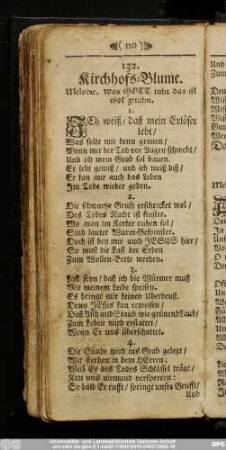 ( 110 )
132.
Kirchhofs-Blume.
Melodie. Was GOTT tuht das ist
wol getahn.
1.
ICh weiß / daß mein Erlöser
lebt /
Was solte mir denn grauen /
Wenn mir der Tod vor Augen schwebt /
Und ich mein Grab sol bauen.
Er lebt gewiß / und ich weiß diß /
Er kan mir auch das Leben
Im Tode wieder geben.
2.
Die schwartze Gruft erschrecket wol /
Des Todes Nacht ist finster.
Wo man im Kerker ruhen sol /
Sind lauter Wurm-Gespinster.
Doch ist bey mir auch JESUS hier /
So muß die Last der Erden
Zum Wollen-Bette werden.
3.
Laß seyn / daß ich die Würmer muß
Mit meinem Leibe speisen.
Es bringt mir keinen Uberdruß.
Denn JEsus kan erweisen /
Daß Asch und Staub wie grünend Laub /
Zum Leben wird erstattet /
Wenn Er uns überschattet.
4.
Die Sünde wird ins Grab gelegt /
Wir sterben in dem HErren:
Weil Er des Todes Schlüssel trägt /
Kan uns niemand versperren:
So bald Er rufft / springt unsre Grufft /
Und